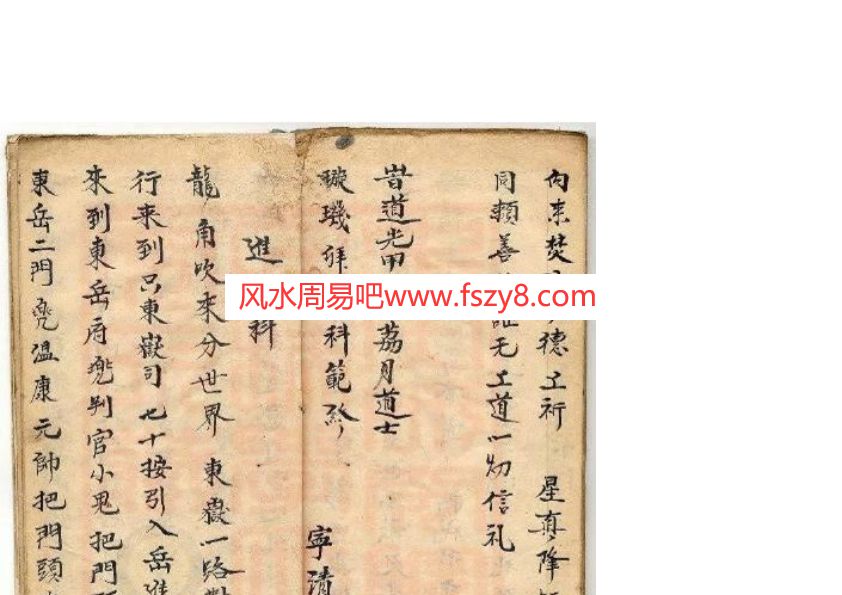 向来焚
德上祈 星真降
同賴善
証无上道一切信礼
昔道光甲
荔月道士
璇璣
科範終
寕清
進
科
龍角吹來分世界 東嶽一路
行来到只東嶽司七十按引入岳進
來到東岳府𠙖判官小鬼把門
東岳二門𠙖温康元帥把門頭
风水周易吧www.fszy8.com